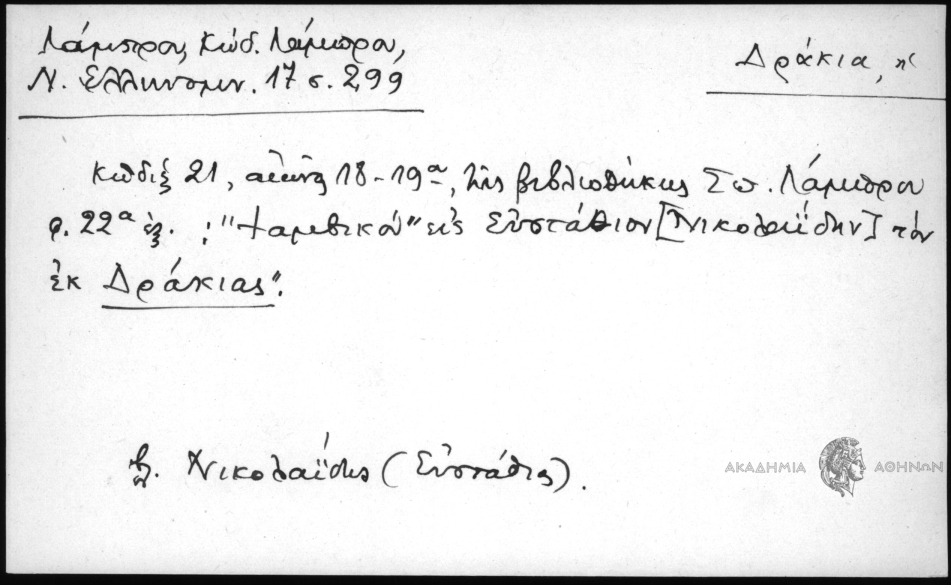 Λάμπρου, Κώδ. Λάμπρου,
Ν. Ἑλληνομν. 17 σ. 299
Δράκια, ἡ
Κῶδιξ 21, αἰῶνος 18-19ου, τῆς βιβλιοθήκης Σπ. Λάμπρου
φ. 22α ἑξ. : "Ἰαμβικοὶ" εἰς Εὐστάθιον [Νικολαΐδην] τὸν
ἐκ Δράκιας".
Νικολαΐδης (Εὐστάθιος).
ΑΚΑΔΗΜΙΑ ΑΘΗΝΩΝ